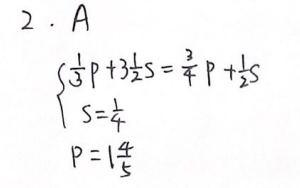 2. A
{ 1/3 P + 3 1/2 S = 3/4 P + 1/2 S
S = 1/4
P = 1 4/5